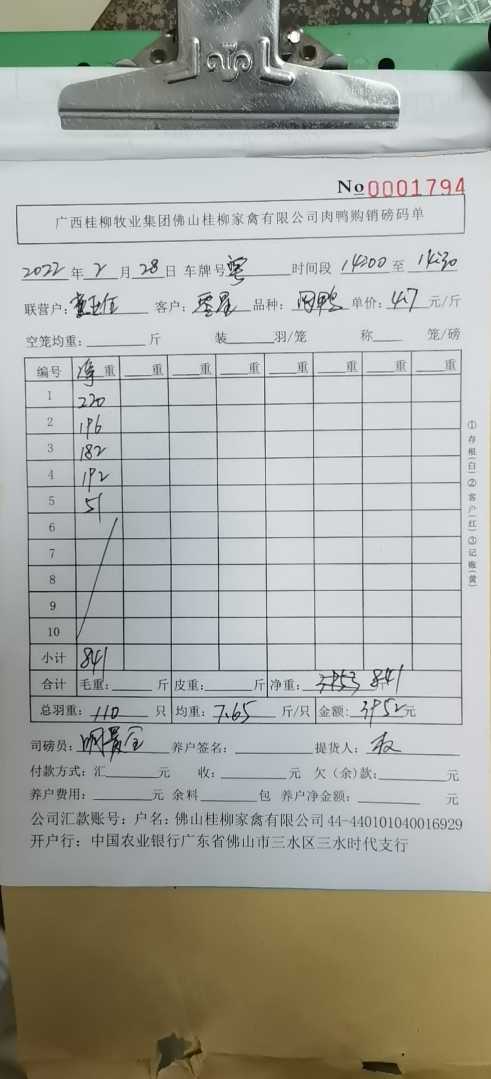 No 0001794
广西桂柳牧业集团佛山桂柳家禽有限公司肉鸭购销磅码单
2022 年 2 月 28 日 车牌号 粤 时间段 14:00 至 14:30
联营户: 客户: 品种: 肉鸭 单价: 4.7 元/斤
空笼均重: 斤 装 羽/笼 称 笼/磅
编号 净重 重 重 重 重 重 重
1 220
2 196
3 182
4 192
5 51
6
7
8
9
10
小计 841
合计 毛重: 斤 皮重: 斤 净重: 841
总羽重: 110 只 均重: 7.65 斤/只 金额: 3952元
司磅员: 养户签名: 提货人: 权
付款方式: 汇 元 收: 元 欠(余)款: 元
养户费用: 元 余料 包 养户净金额: 元
公司汇款账号: 户名: 佛山桂柳家禽有限公司 44-440101040016929
开户行: 中国农业银行广东省佛山市三水区三水时代支行
①存根(白)②客户(红)③记账(黄)